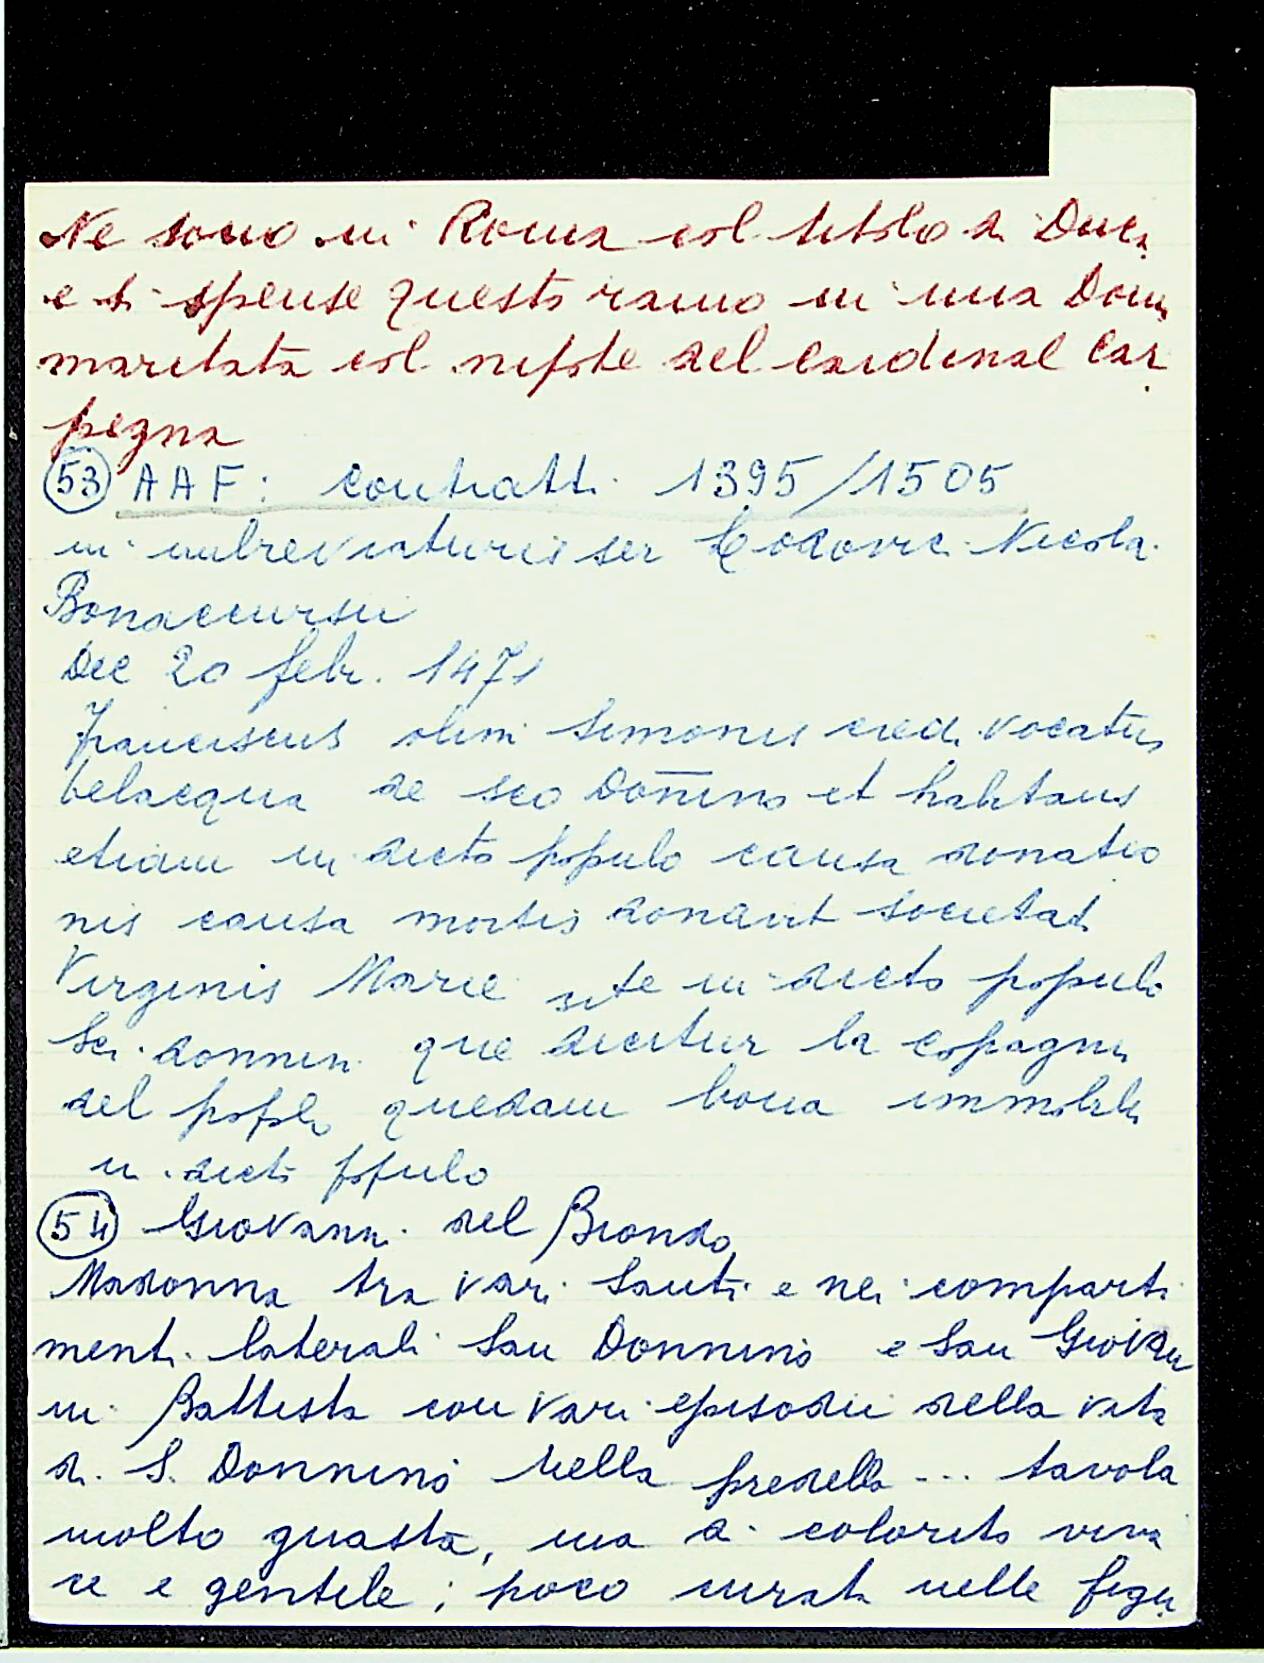 Ne sono in Roma col titolo di Duca
e si spense questo ramo in una Donna
maritata col nipote del Cardinal Car
pegna
53 AAF: Contratti 1395/1505
in imbreviaturis ser Lodovici Nicolai
Bonaccursii
Die 20 febr. 1471
Franciscus olim Simonis vocatus
belacqua de sco Donnino et habitans
etiam in dicto populo causa donatio
nis causa mortis donavit societati
Virginis Marie site in dicto populo
Sci. donnini que dicitur la copagnia
del popolo quedam bona immobilia
in dicto populo
54 Giovanni del Biondo
Madonna tra vari Santi e nei comparti
menti laterali San Donnino e San Giovan
ni Battista con vari episodii della vita
di S. Donnino nella predella ... tavola
molto guasta, ma di colorito viva
ce e gentile; poco curata nelle figu